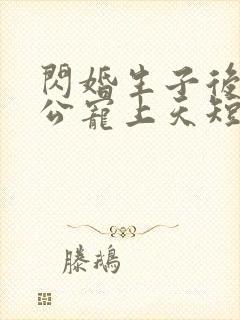 閃婚生子後
公寵上天短
滕鵝